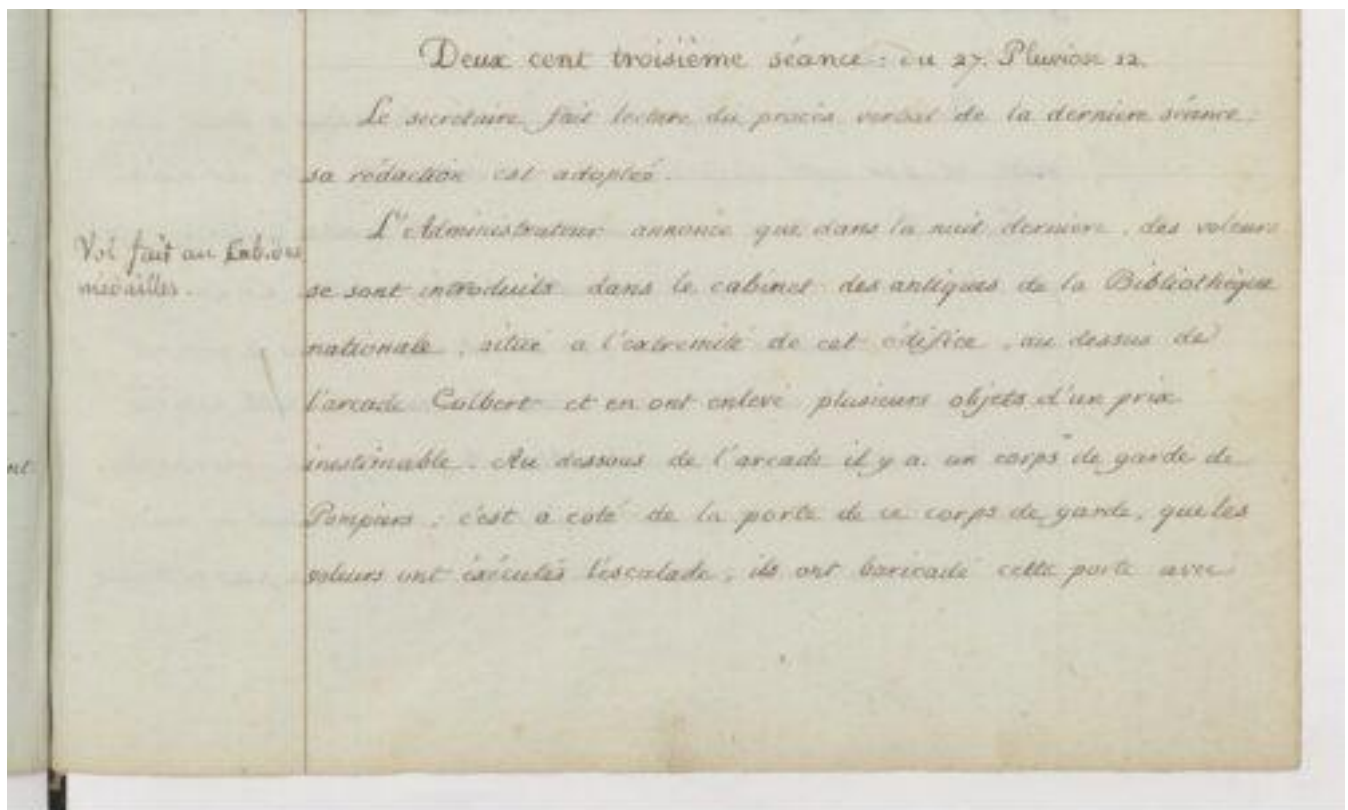 Deux cent troisième séance : du 27. Pluviose 12.
Le secretaire fait lecture du procès verbal de la derniere séance ;
sa rédaction est adoptée.
Vol fait au Cab. des
médailles.
L'Administrateur annonce que dans la nuit derniere, des voleurs
se sont introduits dans le cabinet des antiques de la Bibliothèque
nationale, situé a l'extremité de cet édifice, au dessus de
l'arcade Colbert et en ont enlevé plusieurs objets d'un prix
inestimable. Au dessous de l'arcade il y a un corps de garde de
Pompiers ; c'est a coté de la porte de ce corps de garde, que les
voleurs ont éxécutés l'escalade ; ils ont baricadé cette porte avec